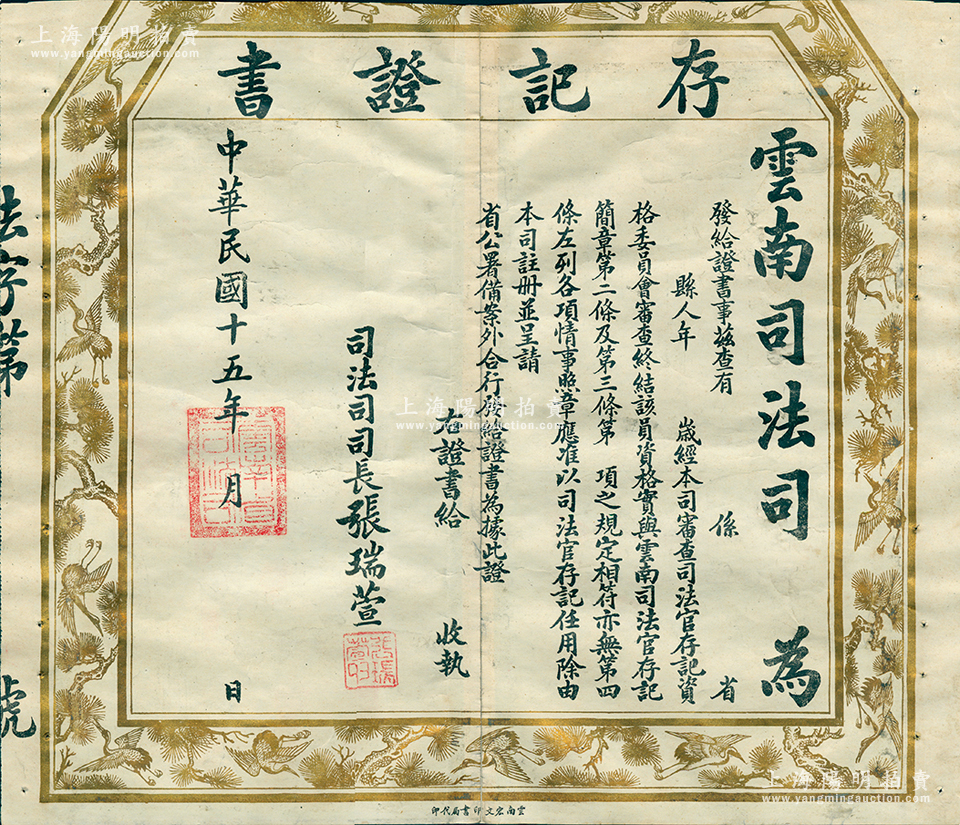 存記證書
雲南司法司 為
發給證書事茲查有 係 省
縣人年 歲經本司審查司法官存記資
格委員會審查終結該員資格實與雲南司法官存記
簡章第二條及第三條第 項之規定相符亦無第四
條左列各項情事照章應准以司法官存記任用除由
本司註册並呈請
省公署備案外合行發給證書為據此證
右證書給 收執
司法司司長張瑞萱
中華民國十五年 月 日
法字第 號
雲南宏文印書局代印
上海陽明拍賣
www.yangmingauction.com
上海陽明拍賣
www.yangmingauction.com
上海陽明拍賣
www.yangmingauction.com